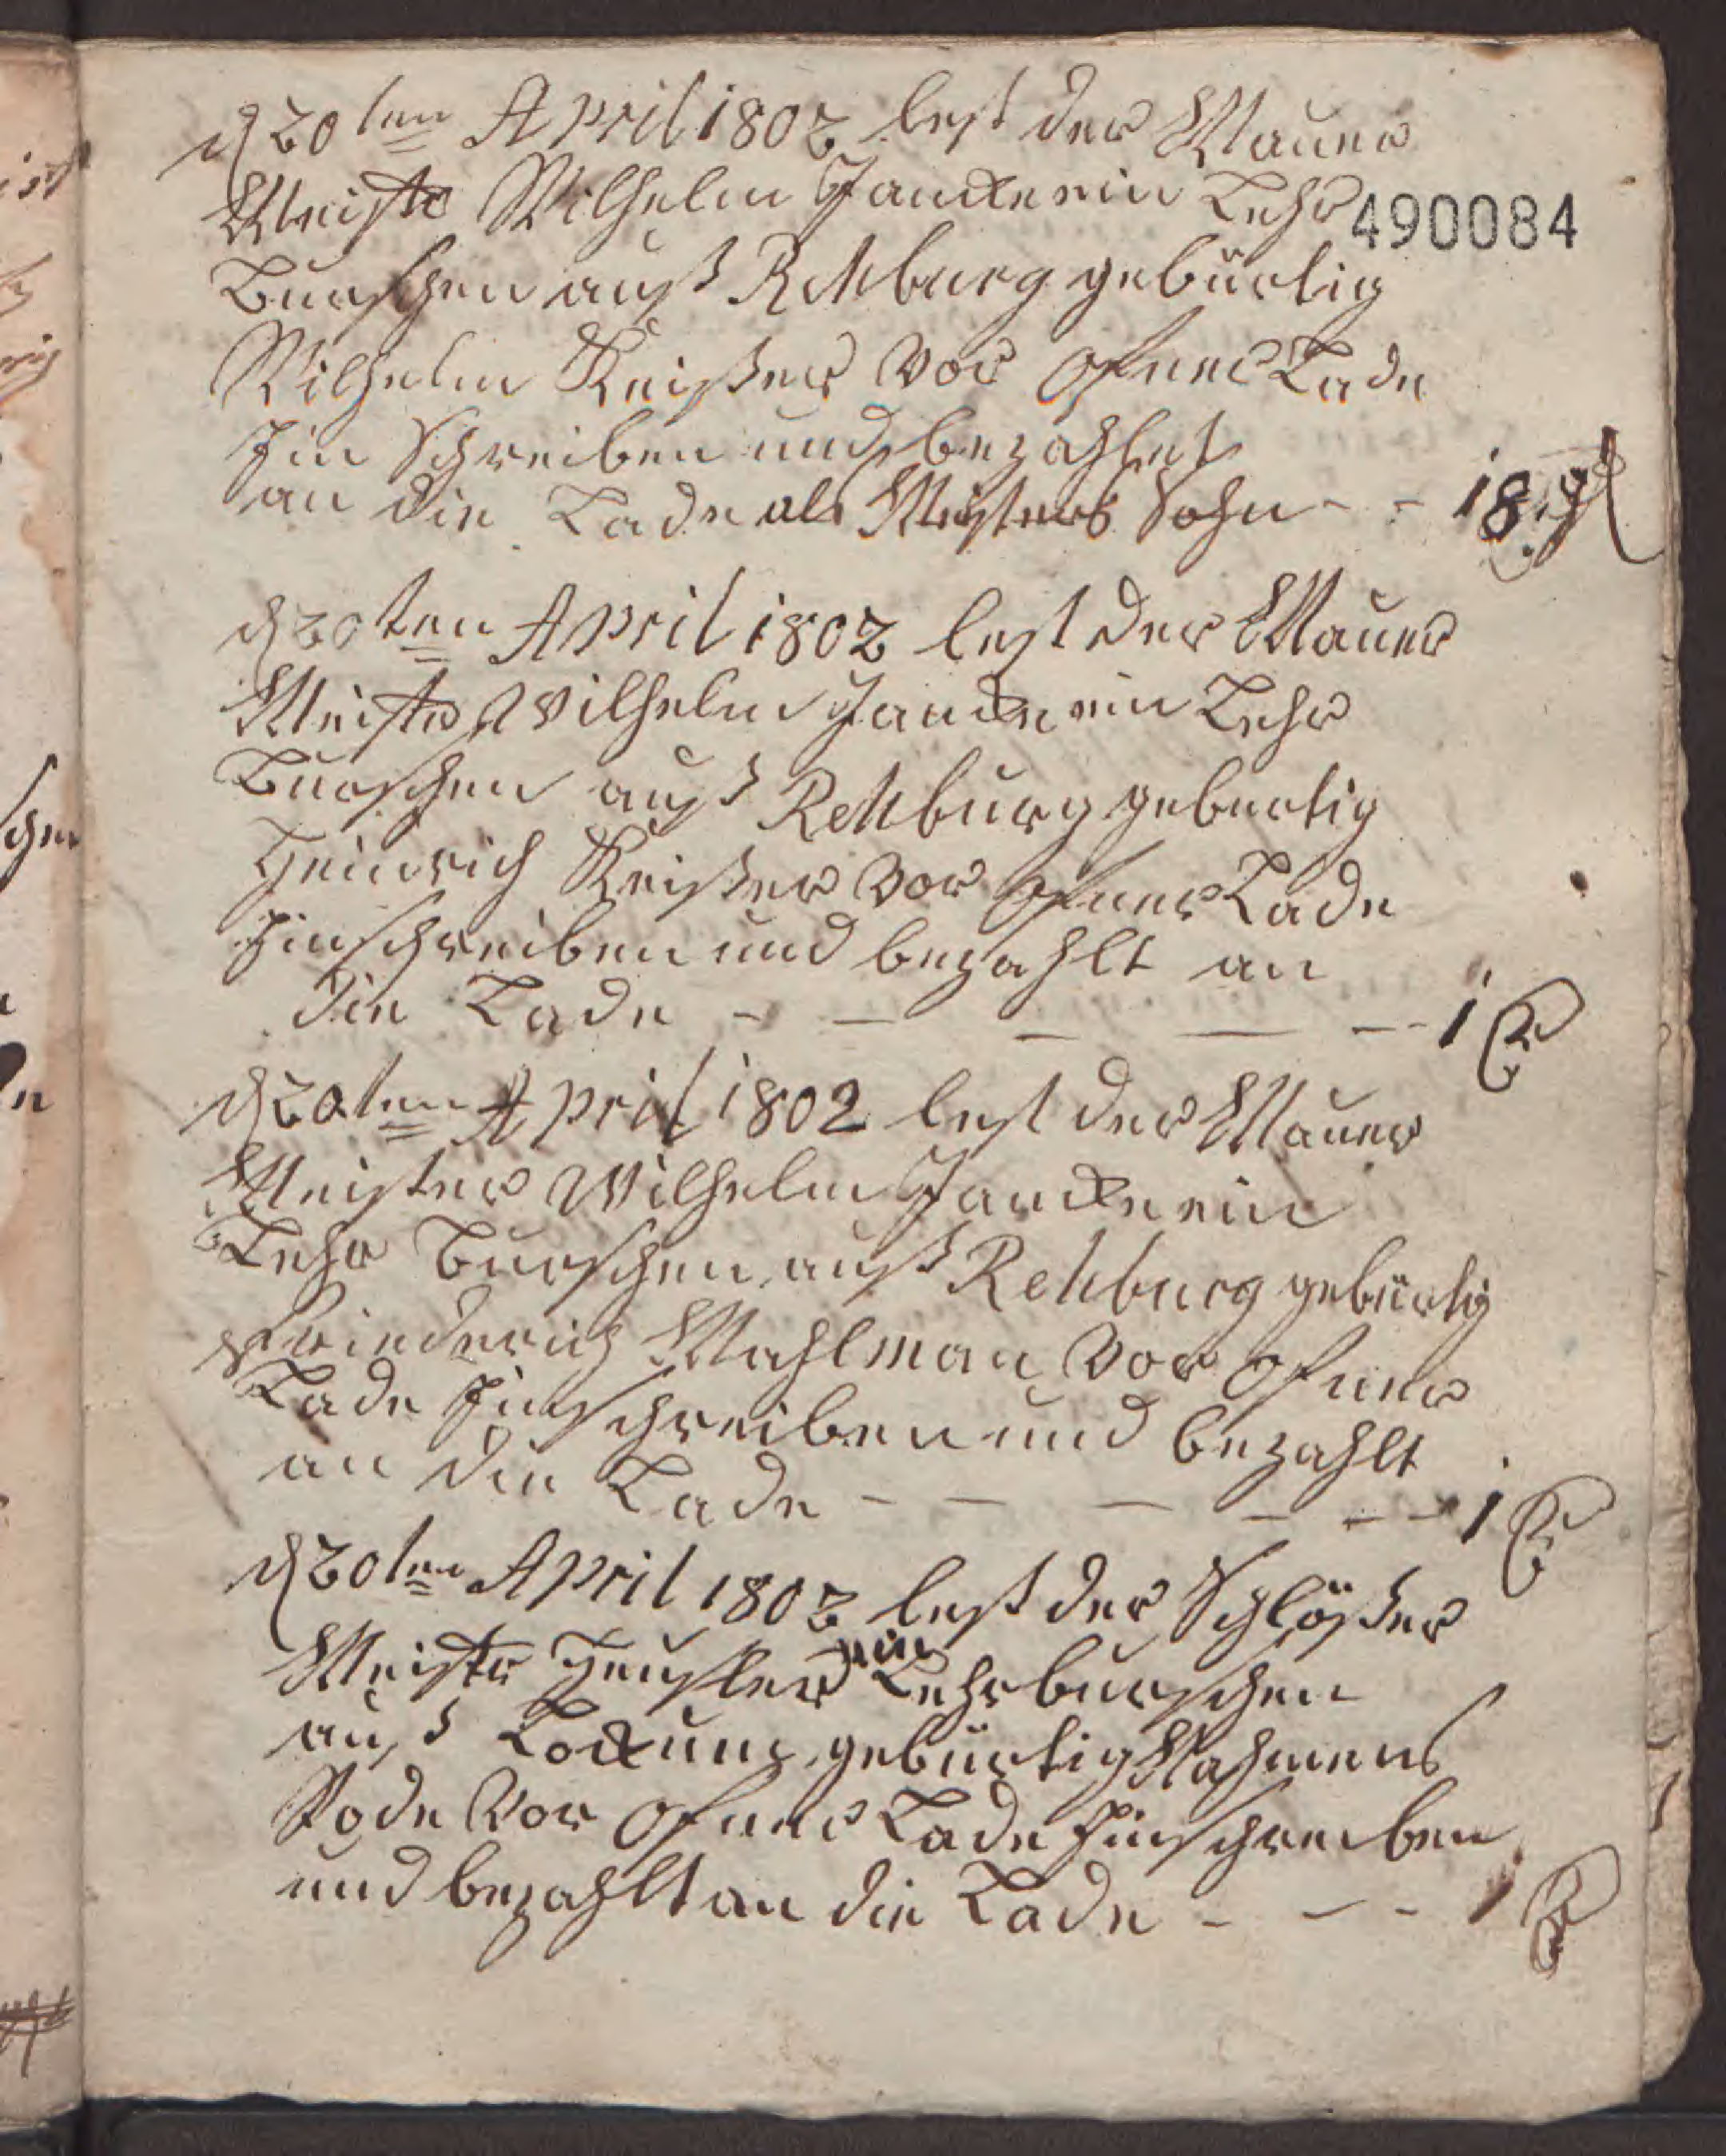 d 20ten April 1802 lest der Mauer
Meister Wilhelm Jancke ein Lehr
490084
Burschen auß Rehburg gebürtig
Wilhelm Keißer vor ofner Lade
Jin Schreiben und bezahlet
an die Lade als Meisters Sohn - - 18 gl
d 20ten April 1802 lest der Mauer
Meister Wilhelm Jancke ein Lehr
Burschen auß Rehburg gebürtig
Heinrich Keißer vor ofner Lade
Jinschreiben und bezahlt an
die Lade - - - - - - 1
d 20ten April 1802 lest der Mauer
Meister Wilhelm Jancke ein
Lehr Burschen auß Rehburg gebürtig
Friederich Mahlman vor ofner
Lade Jinschreiben und bezahlt
an die Lade - - - - - - 1
d 20ten April 1802 lest der Schlößer
Meister ein Lehrburschen
auß Lockum gebürtig Nahmens
Rode vor ofner Lade Jinschreiben
und bezahlt an die Lade - - - 1